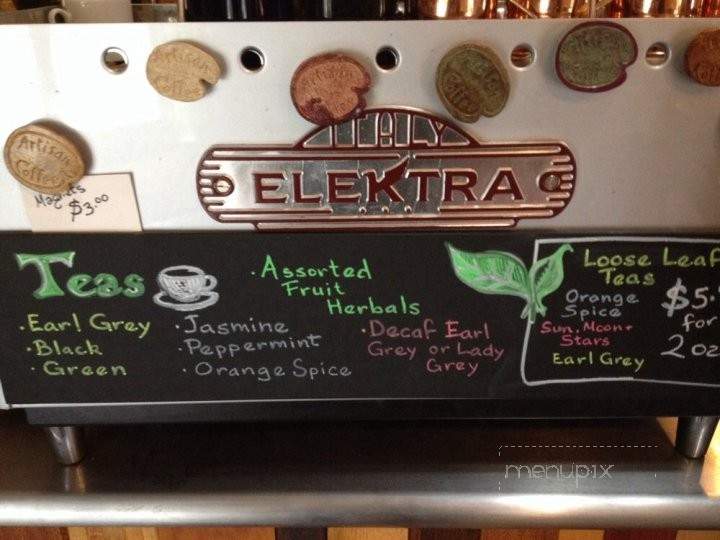 Artisan Coffee
Artisan Coffee
Magnets
$3.00
ITALY
ELEKTRA
Teas
· Earl Grey
· Black
· Green
· Jasmine
· Peppermint
· Orange Spice
· Assorted
Fruit
Herbals
· Decaf Earl
Grey or Lady
Grey
Loose Leaf
Teas
Orange
Spice
Sun, Moon +
Stars
Earl Grey
$5.
for
2 oz
menupix